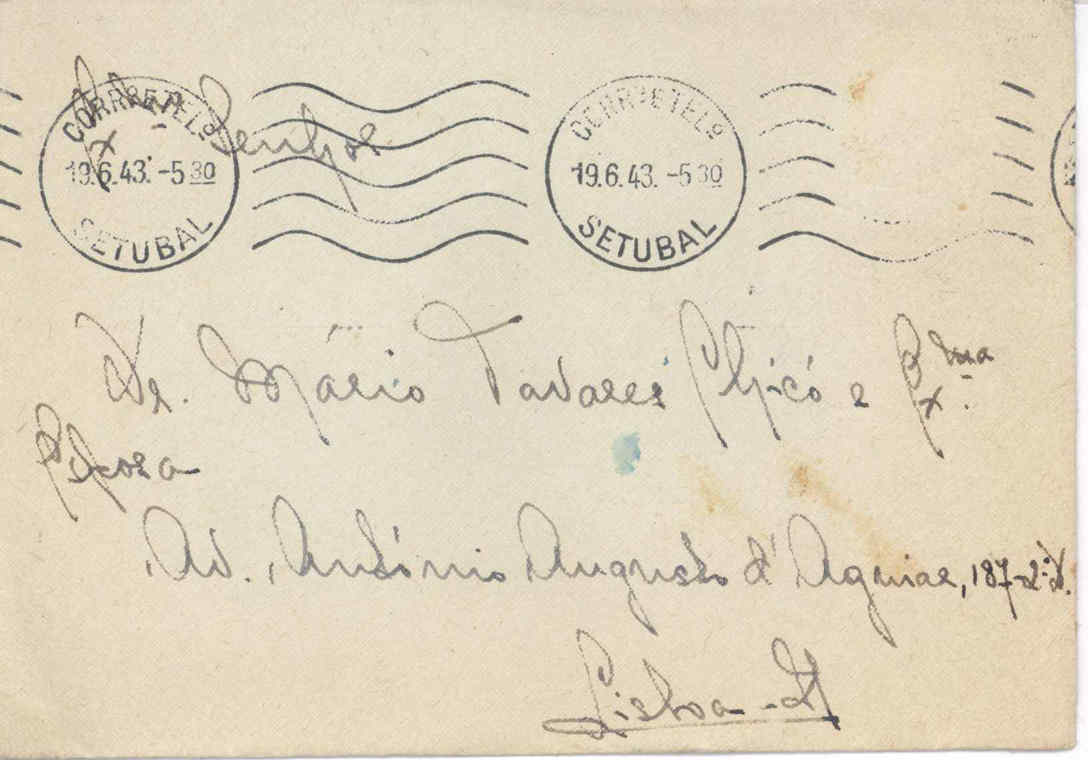 CORR E TEL.º
19.6.43.-5 30
SETUBAL
CORR E TEL.º
19.6.43.-5 30
SETUBAL
Exmo Senhor
Dr. Mário Tavares Chicó e Exma
Esposa
Av. António Augusto d'Aguiar, 187-2º D.
Lisboa-N